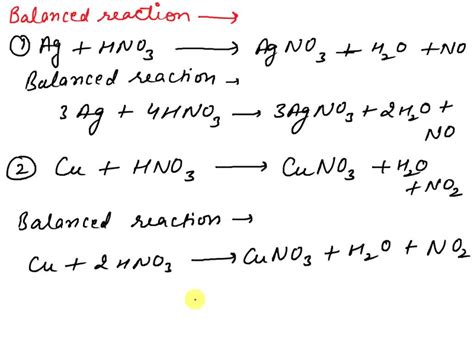 Balanced reaction →
① Ag + HNO₃ → AgNO₃ + H₂O + NO
Balanced reaction →
3Ag + 4HNO₃ → 3AgNO₃ + 2H₂O +
NO
② Cu + HNO₃ → CuNO₃ + H₂O
+ NO₂
Balanced reaction →
Cu + 2HNO₃ → CuNO₃ + H₂O + NO₂